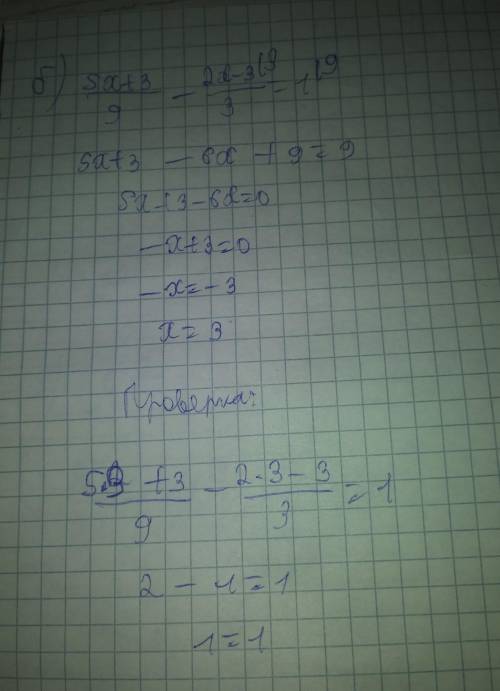 б) (5x+3)/9 - (2x-3)/3 |3 = 1 |9
5x+3 - 6x + 9 = 9
5x+3-6x=0
-x+3=0
-x=-3
x=3
Проверка:
(5·3+3)/9 - (2·3-3)/3 = 1
2-1=1
1=1